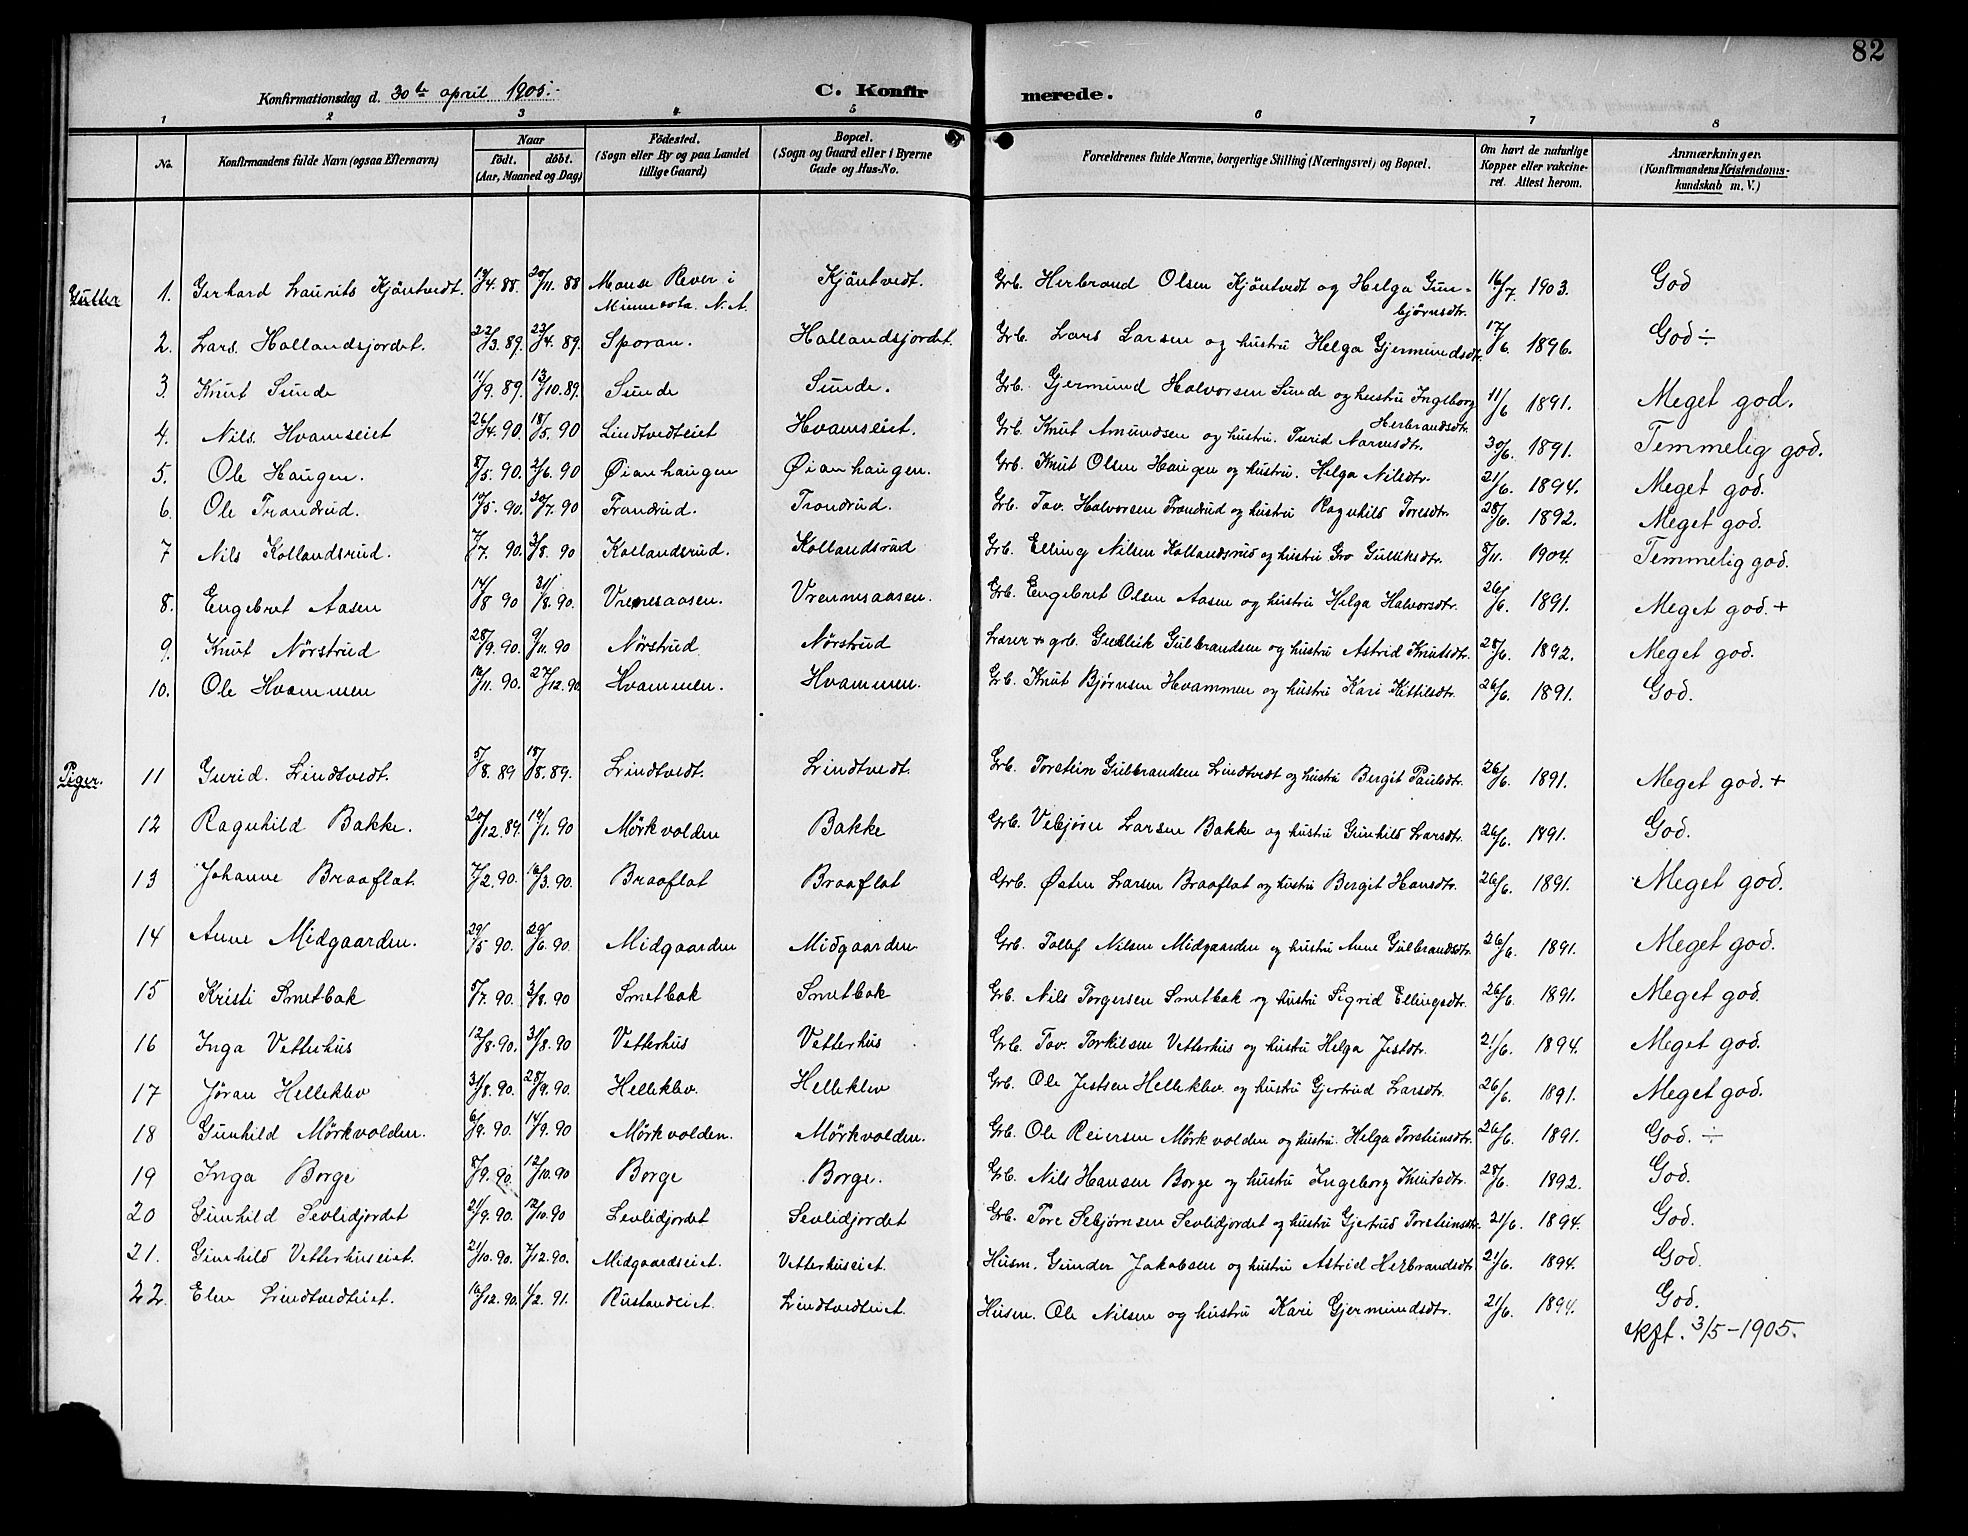 82
Konfirmationsdag d. 30te april 1905.-
C. Konfirmerede.
1 2 3 4 5 6 7 8
No. Konfirmandens fulde Navn (ogsaa Efternavn) Naar født. døbt. (Aar, Maaned og Dag) Fødested. (Sogn eller By og paa Landet tillige Gaard) Bopæl. (Sogn og Gaard eller i Byerne Gade og Hus-No. Forældrenes fulde Navne, borgerlige Stilling (Næringsvei) og Bopæl. Om havt de naturlige Kopper eller vakcineret. Attest herom. Anmærkninger. (Konfirmandens Kristendomskundskab m. V.)
Gutter 1. Gerhard Laurits Kjöntvedt. 19/4. 88. 20/11. 88 Mouse River i Minnesota. N. A. Kjöntvedt. Grb. Herbrand Olsen Kjöntvedt og Helga Gunbjørnsdtr. 16/7 1903. God
2. Lars Hollandsjordet. 22/3. 89. 23/4. 89. Sporan. Hallandsjordet. Grb. Lars Larsen og hustru Helga Gjermundsdtr. 17/6. 1896. God ÷
3. Knut Sunde 11/9. 89. 13/10. 89. Sunde Sunde. Grb. Gjermund Halvorsen Sunde og hustru Ingeborg Herbrandsdtr. 11/6 1891. Meget god.
4. Nils Hvamseiet 26/4. 90. 18/5. 90 Lindtvedteiet Hvamseiet. Grb. Knut Amundsen og hustru. Turid Narvesdtr. 30/6. 1891. Temmelig god.
5. Ole Haugen. 8/5. 90. 2/6. 90 Øianhaugen Øianhaugen. Grb. Knut Olsen Haugen og hustru. Helga Nilsdtr. 21/6. 1894. Meget god.
6. Ole Trondrud. 19/5. 90. 20/7. 90 Trondrud. Trondrud. Grb. Tov. Halvorsen Trondrud og hustru Ragnhild Toresdtr. 28/6. 1892. Meget god.
7 Nils Kollandsrud. 7/7. 90. 3/8. 90 Kollandsrud. Kollandsrud Grb. Elling Nilsen Kollandsrud og hustru Gro Gulliksdtr. 8/11. 1904. Temmelig god.
8. Engebret Aasen 14/8 90 31/8. 90. Vrenesaasen. Vrennesaasen. Grb. Engebret Olsen Aasen og hustru Helga Halvorsdtr. 26/6. 1891. Meget god. +
9. Knut Nörstrud 28/9. 90. 9/11. 90 Nörstrud. Nörstrud Lærer + grb. Gullik Gulbrandsen og hustru Astrid Knutsdtr. 28/6. 1892. Meget god.
10. Ole Hvammen 16/11. 90. 27/12. 90 Hvammen. Hvammen. Grb. Knut Bjørnsen Hvammen og hustru Kari Kittilsdtr. 26/6. 1891. God.
Piger. 11 Gurid. Lindtvedt. 5/8. 89 18/8. 89. Lindtvedt. Lindtvedt. Grb. Torstein Gulbrandsen Lindtvedt og hustru Bergit Paulsdtr. 26/6. 1891. Meget god. +
12 Ragnhild Bakke. 20/12. 89. 19/1. 90 Mörkvolden Bakke Grb. Vebjörn Larsen Bakke og hustru Gunhild Larsdtr. 26/6. 1891. God.
13 Johanne Braaflat. 7/2. 90. 16/3. 90. Braaflat Braaflat Grb. Østen Larsen Braaflat og hustru Bergit Hansdtr. 26/6. 1891. Meget god.
14 Anne Midgaarden. 29/5 90. 29/6. 90. Midgaarden Midgaarden Grb. Tollef Nilsen Midgaarden og hustru Anne Gulbrandsdtr. 26/6. 1891. Meget god.
15 Kristi Smetbak 5/7. 90. 3/8. 90 Smetbak Smetbak Grb. Nils Torgersen Smetbak og hustru Sigrid Ellingsdtr. 26/6. 1891. Meget god.
16 Inga Vetterhus 12/8. 90. 31/8. 90 Vetterhus Vetterhus Grb. Tov. Torkilsen Vetterhus og hustru Helga Jestdtr. 21/6. 1894. Meget god.
17 Jöran Helleklev 31/8. 90. 28/9. 90. Helleklev. Helleklev Grb. Ole Jestsen Helleklev og hustru Gjertrud Larsdtr. 26/6. 1891. Meget god.
18 Gunhild Mörkvolden. 6/9. 90. 14/9. 90 Mörkvolden. Mörkvolden. Grb. Ole Reiersen Mörkvolden og hustru. Helga Torsteinsdtr. 26/6. 1891. God. ÷
19 Inga Borge 8/9. 90. 12/10. 90 Borge Borge. Grb. Nils Hansen Borge og hustru Ingeborg Knutsdtr. 28/6. 1892. God.
20 Gunhild Sevlidjordet 21/9. 90. 12/10. 90 Sevlidjordet Sevlidjordet Grb. Tore Sebjørnsen Sevlidjordet og hustru Gjertrud Torsteinsdtr. 21/6. 1894. God.
21. Gunhild Vetterhuseiet. 21/10. 90. 7/12. 90. Midgaardseiet. Vetterhuseiet. Husm. Gunder Jakobsen og hustru Astrid Herbrandsdtr 21/6. 1894. God.
22. Elen Lindtvedteiet. 16/12. 90. 1/2. 91. Rustandeiet. Lindtvedteiet. Husm. Ole Nilsen og hustru Kari Gjermundsdtr. 21/6. 1894. God.
kft. 3/5-1905.